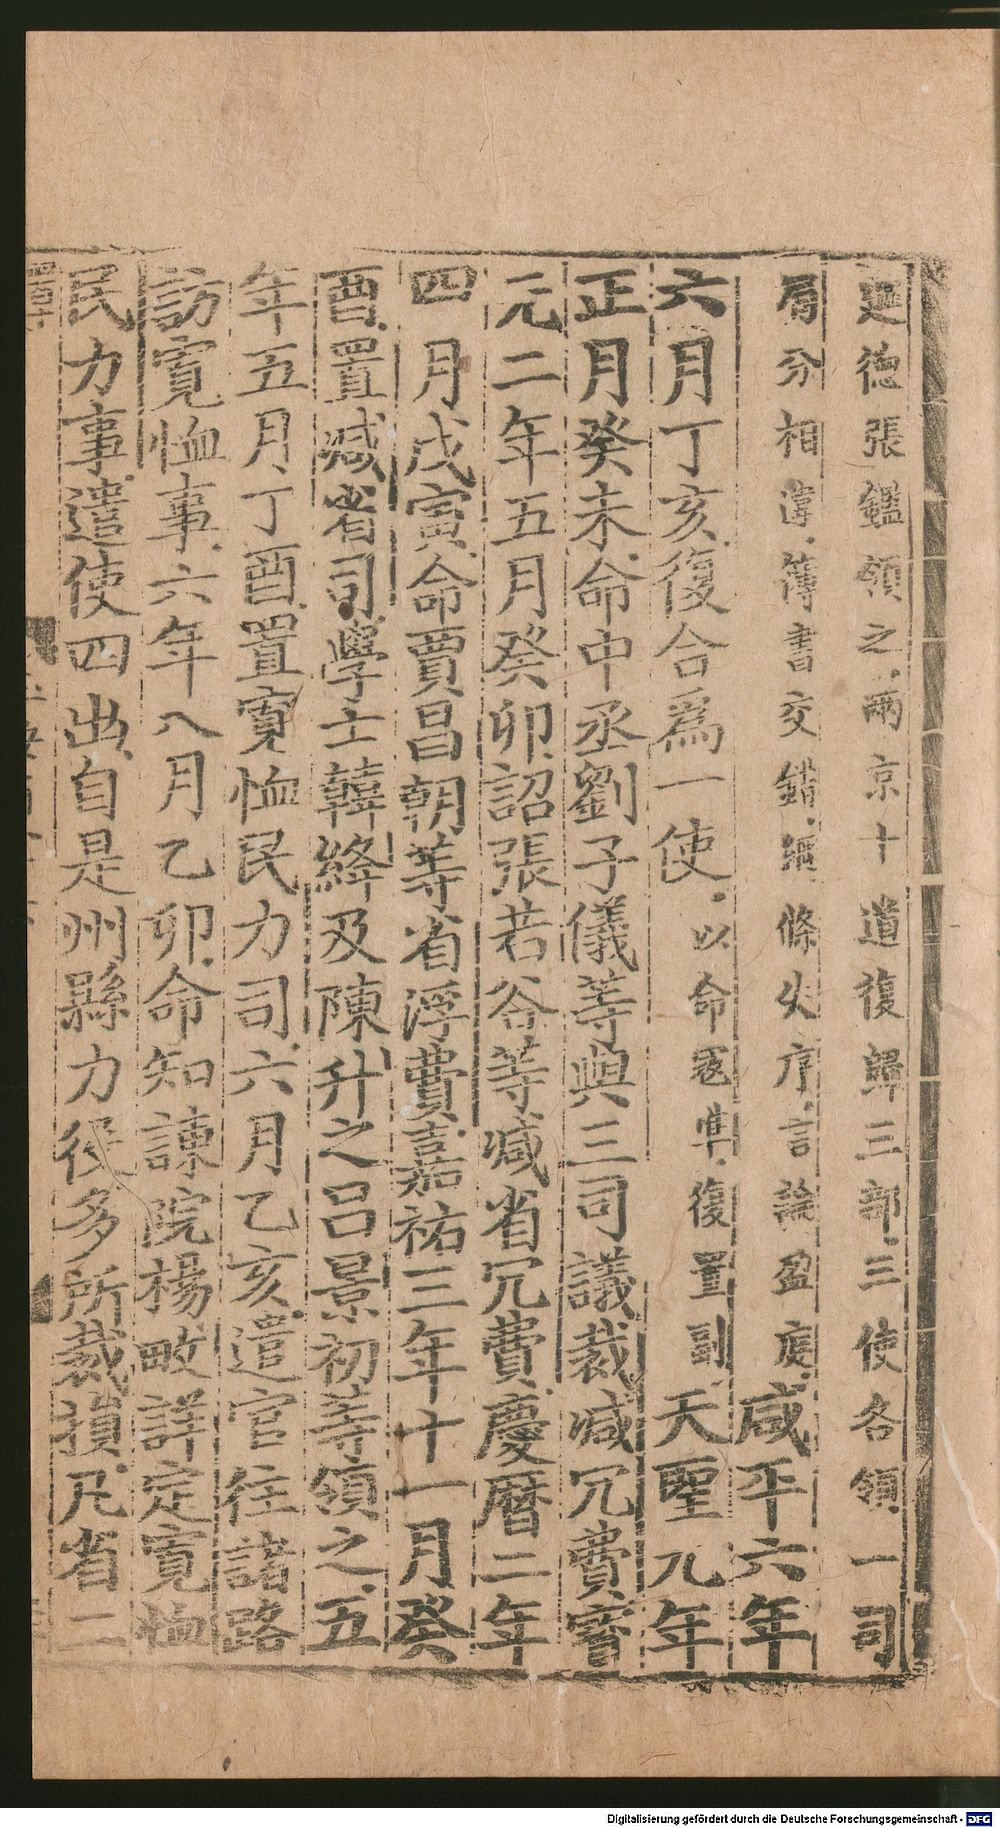 延德張鑑領之兩京十道復歸三部三使各領一司
局分相違簿書交錯綱條失序言論盈庭咸平六年
六月丁亥復合爲一使以命寇準復置副天聖元年
正月癸未命中丞劉子儀等與三司議裁减冗費寳
元二年五月癸卯詔張若谷等减省冗費慶曆二年
四月戊寅命賈昌朝等省浮費嘉祐三年十一月癸
酉置减省司學士韓絳及陳升之呂景初等領之五
年五月丁酉置寛恤民力司六月乙亥遣官往諸路
訪寛恤事六年八月乙卯命知諫院楊畋詳定寛恤
民力事遣使四出自是州縣力役多所裁損凡省二
Digitalisierung gefördert durch die Deutsche Forschungsgemeinschaft - DFG